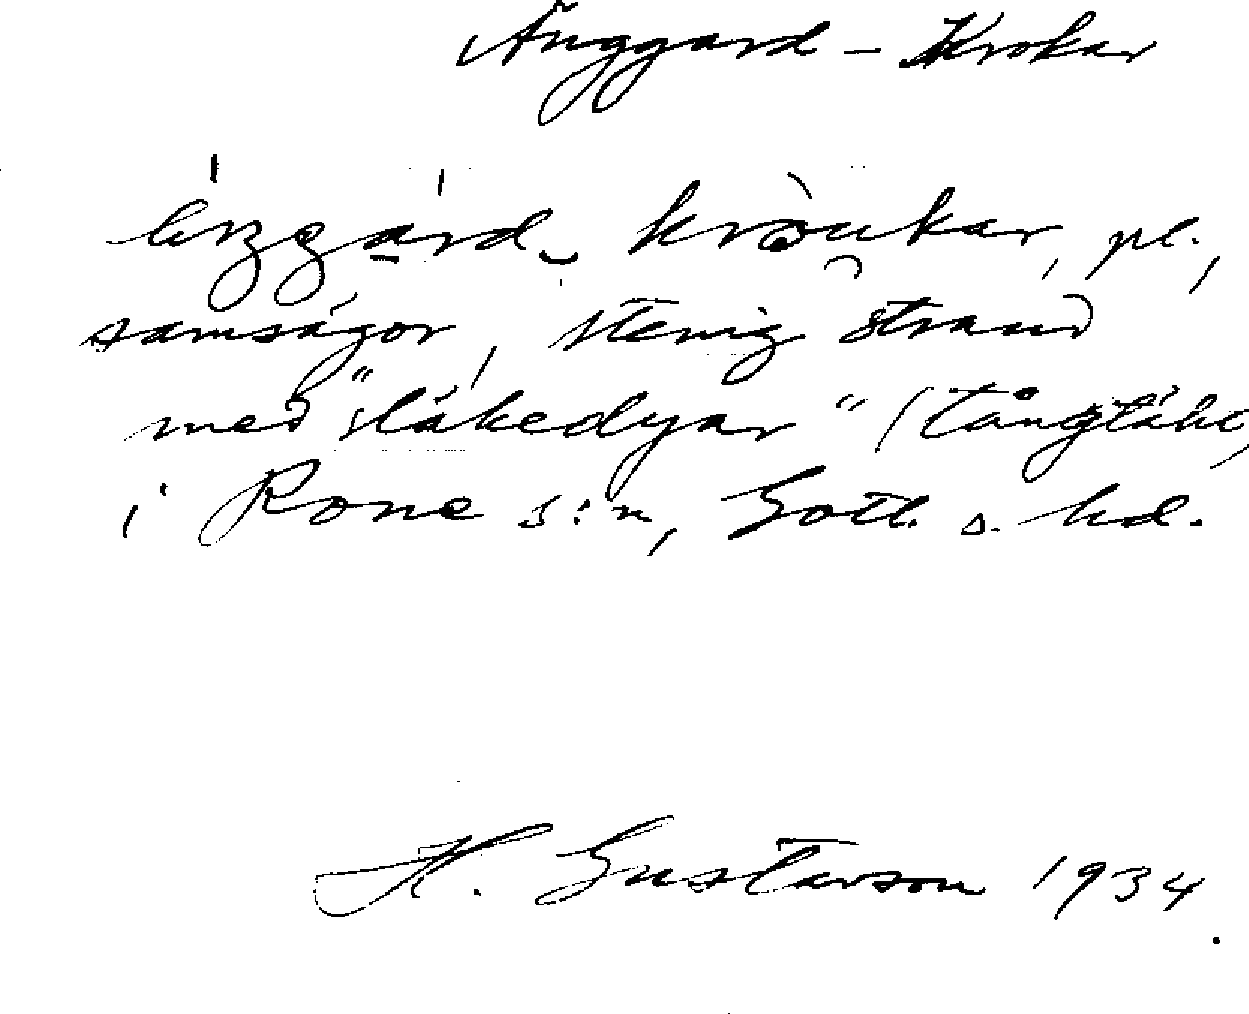 Änggard – Krokar
kròukar, pl.,
samsägor, stenig strand
med "släkedyar" (tångtäkt,
i Rone s:n, Gotl. s. hd.
H. Gustavson 1934.